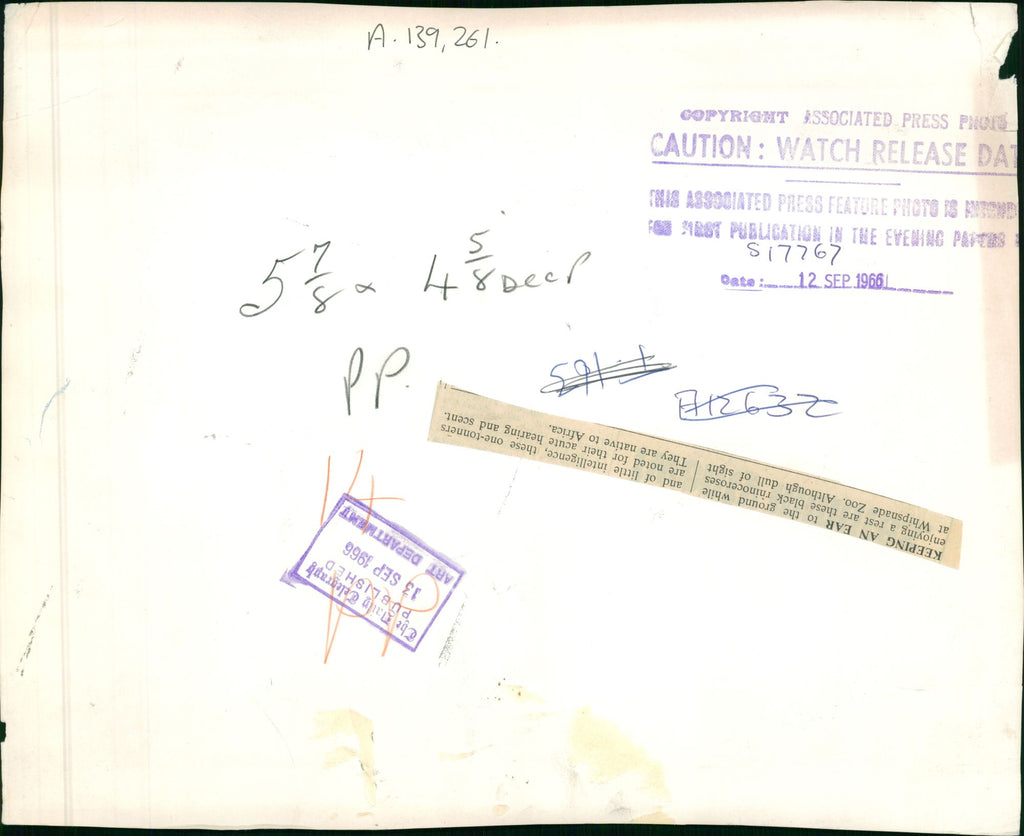 A. 139,261.
COPYRIGHT ASSOCIATED PRESS PHOTO
CAUTION: WATCH RELEASE DAT
THIS ASSOCIATED PRESS FEATURE PHOTO IS
FOR FIRST PUBLICATION IN THE EVENING PAPERS
S17767
Date: 12 SEP 1966
5 7/8 x 4 5/8
PP.
KEEPING AN EAR to the ground while
enjoying a rest are these black rhinoceroses
at Whipsnade Zoo. Although dull of sight
and of little intelligence, these one-tonners
are noted for their acute hearing and scent.
They are native to Africa.
The Daily Telegraph
PUBLISHED
13 SEP 1966
ART DEPARTMENT